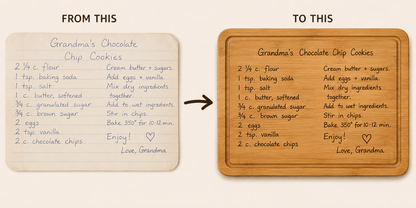 FROM THIS
Grandma's Chocolate
Chip Cookies
2 ¼ c. flour
1 tsp. baking soda
1 tsp. salt
1 c. butter, softened
¾ c. granulated sugar
¾ c. brown sugar
2 eggs
2 tsp. vanilla
2 c. chocolate chips
1
Cream butter + sugars.
Add eggs + vanilla.
Mix dry ingredients
together.
Add to wet ingredients.
Stir in chips.
Bake 350° for 10-12 min.
Enjoy!
Love, Grandma
TO THIS
Grandma's Chocolate Chip Cookies
2 ¼ c. flour
1 tsp. baking soda
1 tsp. salt
1 c. butter, softened
¾ c. granulated sugar
¾ c. brown sugar
2 eggs
2 tsp. vanilla
2 c. chocolate chips
Cream butter + sugars.
Add eggs + vanilla.
Mix dry ingredients
together.
Add to wet ingredients.
Stir in chips.
Bake 350° for 10-12 min.
Enjoy!
Love, Grandma